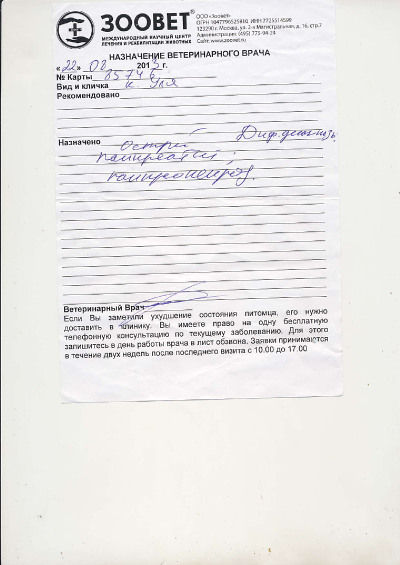 ЗООВЕТ®
МЕЖДУНАРОДНЫЙ НАУЧНЫЙ ЦЕНТР
ЛЕЧЕНИЯ И РЕАБИЛИТАЦИИ ЖИВОТНЫХ
ООО «Зоовет»
Сайт: www.zoovet.ru
НАЗНАЧЕНИЕ ВЕТЕРИНАРНОГО ВРАЧА
«22» 02 2015 г.
№ Карты 85746
Вид и кличка к Уля
Рекомендовано
Диф. диагноз:
Назначено Острый
панкреатит,
панкреонекроз.
Ветеринарный Врач
Если Вы заметили ухудшение состояния питомца, его нужно
доставить в клинику. Вы имеете право на одну бесплатную
телефонную консультацию по текущему заболеванию. Для этого
запишитесь в день работы врача в лист обзвона. Заявки принимаются
в течение двух недель после последнего визита с 10.00 до 17.00